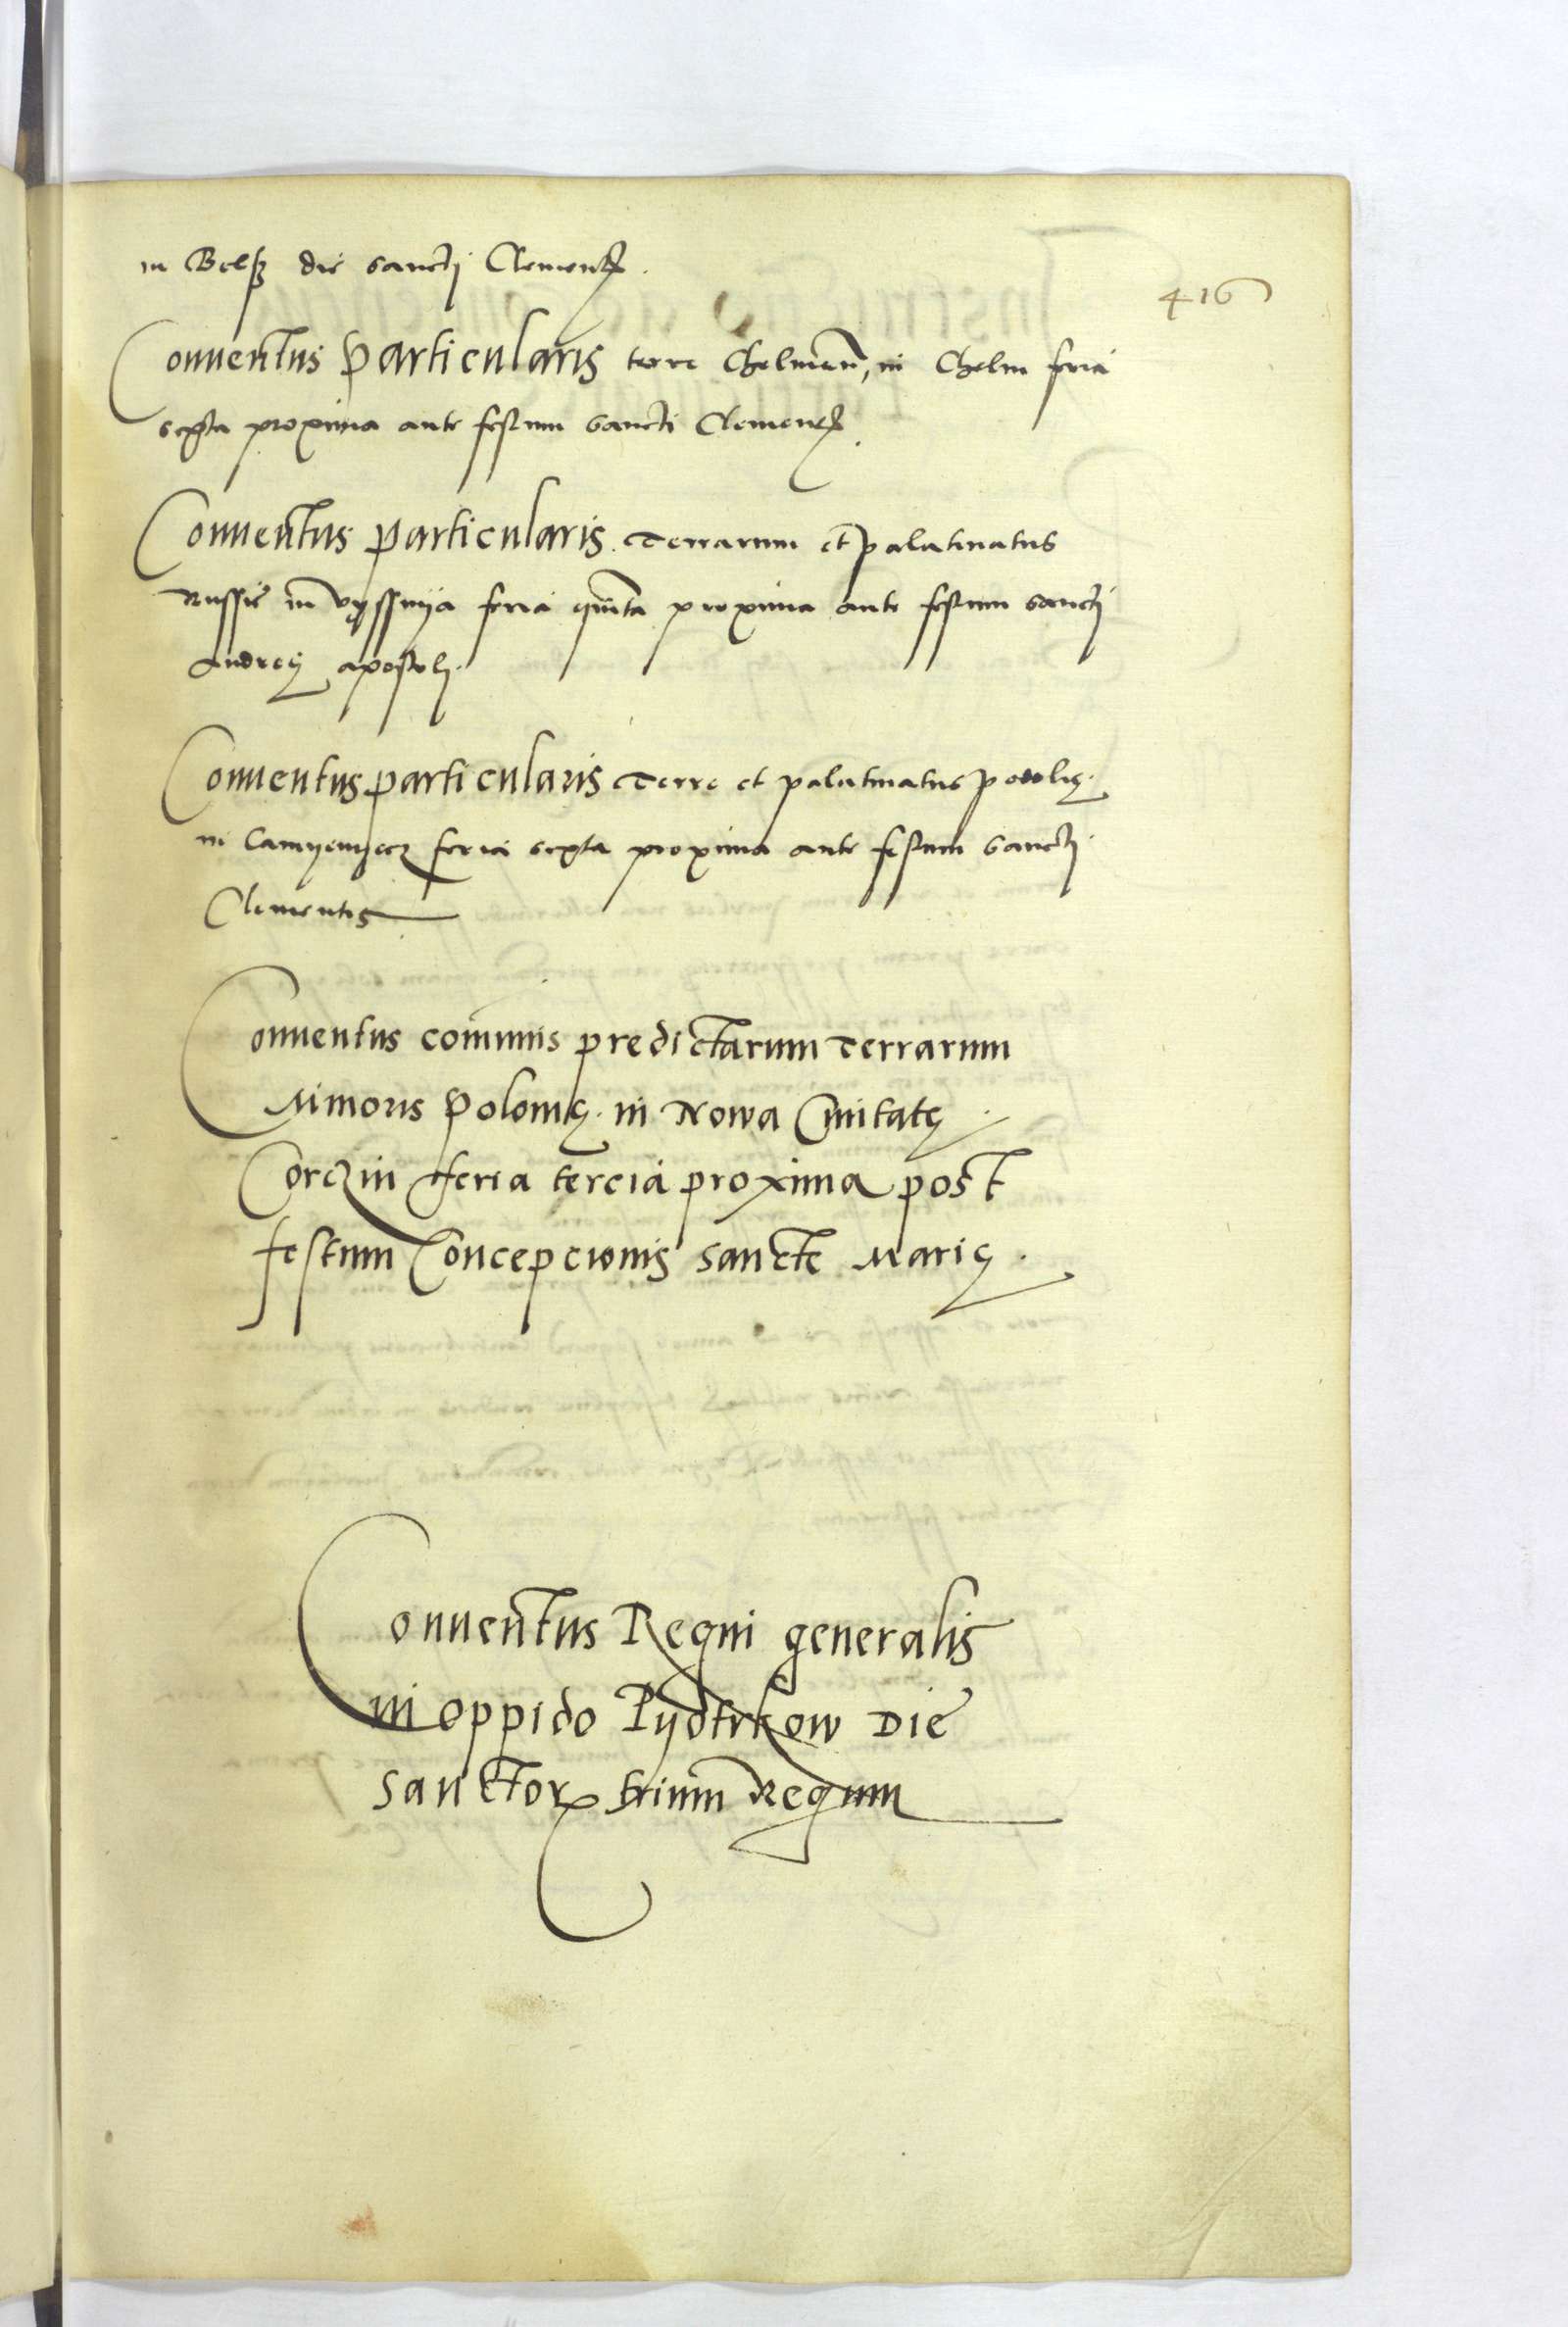 in Belß die sancti Clement̃
416
Conuentus Particularis terre Chelmeñ, in Chelm feria
sexta proxima ante festum sancti Clement̃
Conuentus particularis Terrarum et palatinatus
Russie in vyssnya feria quinta proxima ante festum sancti
Andreę apostoli.
Conuentus particularis Terre et palatinatus podolię.
in Camyenyecz feria sexta proxima ante festum Sancti
Clementis
Conuentus com̃unis predictarum Terrarum
Minoris Polonię. in Nowa Ciuitatę
Corczin feria tercia proxima post
festum Concepcionis sancte Marię.
Conuentus Regni generalis
in oppido Pyotrkow Die
sanctoꝝ trium Regum